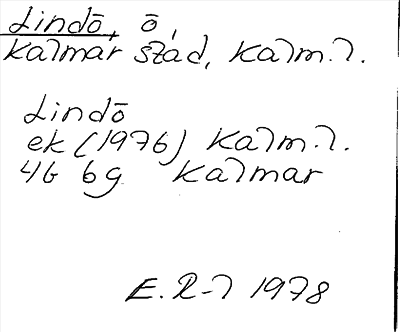 Lindō, ō,
Kalmar stad, Kalm. l.
Lindō
ek (1976) Kalm. l.
4G 6g Kalmar
E. R-l 1978